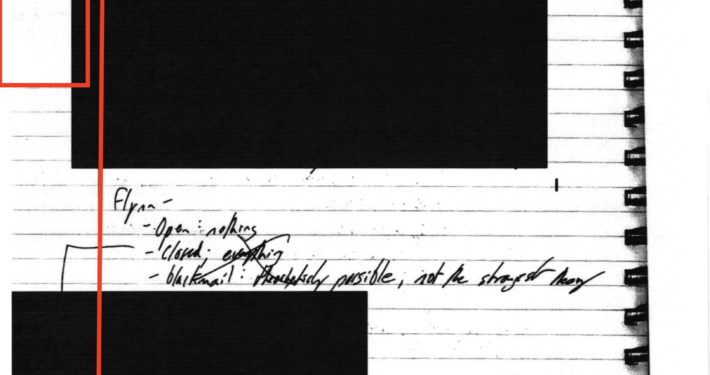 Flynn -
- Open: nothing
- Closed; everything
- blackmail: theoretically possible, not the strongest theory